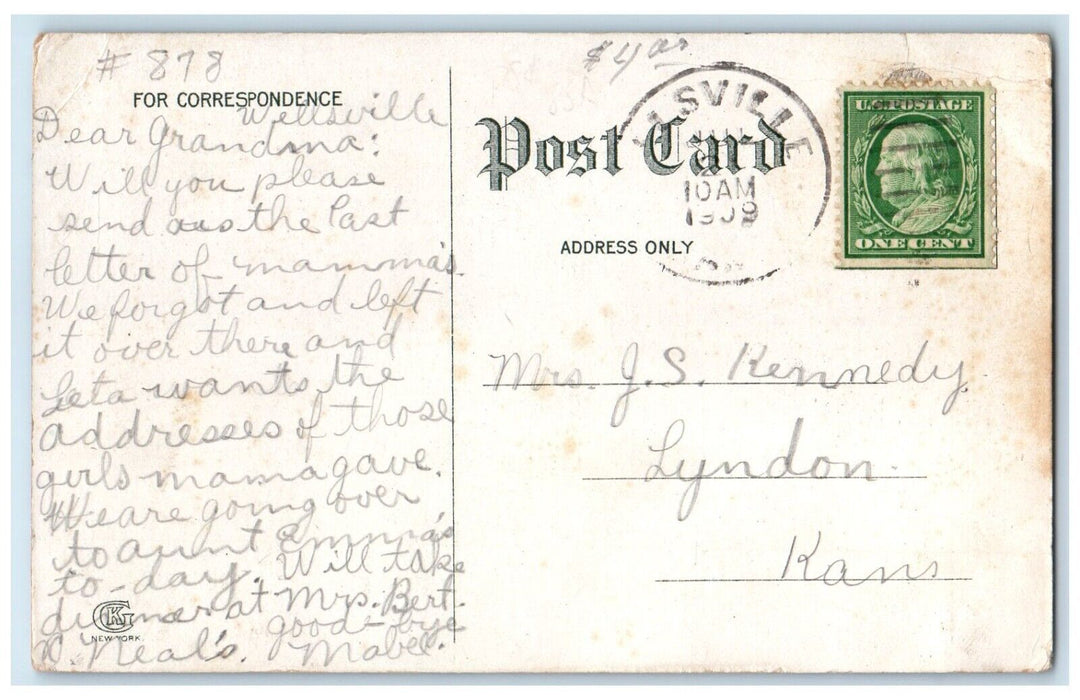 # 878
$4.00
FOR CORRESPONDENCE
Wellsville
Dear Grandma:
Will you please
send us the last
letter of mamma's.
We forgot and left
it over there and
Leta wants the
addresses of those
girls mama gave.
We are going over
to aunt Emma's
to-day. Will take
dinner at Mrs. Bert.
O'Neal's. good-bye
Mabel.
CGK
NEW YORK.
Post Card
ADDRESS ONLY
LLSVILLE
10AM
1909
U.S. POSTAGE
ONE CENT
Mrs. J.S. Kennedy
Lyndon.
Kans